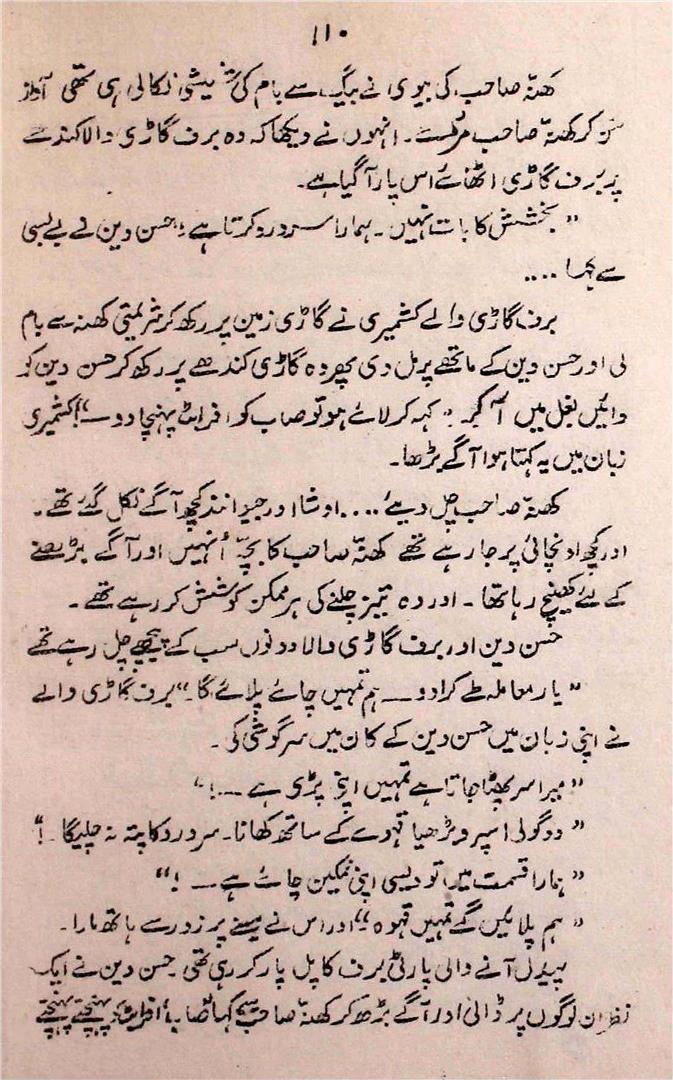 ۱۱۰
کھنّہ صاحب کی بیوی نے بیگ سے بام کی شیشی نکالی ہی تھی آواز
سُن کر کھنّہ صاحب مڑے۔ انہوں نے دیکھا کہ وہ برف گاڑی والا کندھے
پر برف گاڑی اٹھائے اس پار آ گیا ہے۔
”بخشش کا بات نہیں۔ ہمارا سر درد کرتا ہے“ حسن دین نے بے بسی
سے کہا ....
برف گاڑی والے کشمیری نے گاڑی زمین پر رکھ کر شریمتی کھنہ سے بام
لی اور حسن دین کے ماتھے پر مل دی پھر وہ گاڑی کندھے پر رکھ کر حسن دین کو
دائیں بغل میں آ کر : کہہ کر لائے ہو تو صاب کو افراٹ پہنچا دو —“! کشمیری
زبان میں یہ کہتا ہوا آگے بڑھا۔
کھنّہ صاحب چل دیئے .... اوشا اور جیوانند کچھ آگے نکل گئے تھے۔
اور کچھ اونچائی پر جا رہے تھے کھنّہ صاحب کا بچّہ اُنہیں اور آگے بڑھنے
کے لئے کھینچ رہا تھا۔ اور وہ تیز چلنے کی ہر ممکن کوشش کر رہے تھے۔
حسن دین اور برف گاڑی والا دونوں سب کے پیچھے چل رہے تھے
”یار معاملہ طے کرا دو — ہم تمہیں چائے پلائے گا۔“ برف گاڑی والے
نے اپنی زبان میں حسن دین کے کان میں سرگوشی کی۔
”میرا سر پھٹا جاتا ہے تمہیں اپنی پڑی ہے —!“
”دو گولی اسپرو بڑھیا قہوے کے ساتھ کھانا۔ سر درد کا پتہ نہ چلیگا۔!“
”ہمارا قسمت میں تو دیسی اپنی نمکین چائے ہے — !“
”ہم پلائیں گے تمہیں قہوہ“ اور اس نے سینے پر زور سے ہاتھ مارا۔
پیدل آنے والی پارٹی برف کا پل پار کر رہی تھی حسن دین نے ایک
نظر ان لوگوں پر ڈالی اور آگے بڑھ کر کھنّہ صاحب سے کہا ”صاب، افراٹ پہنچتے پہنچتے